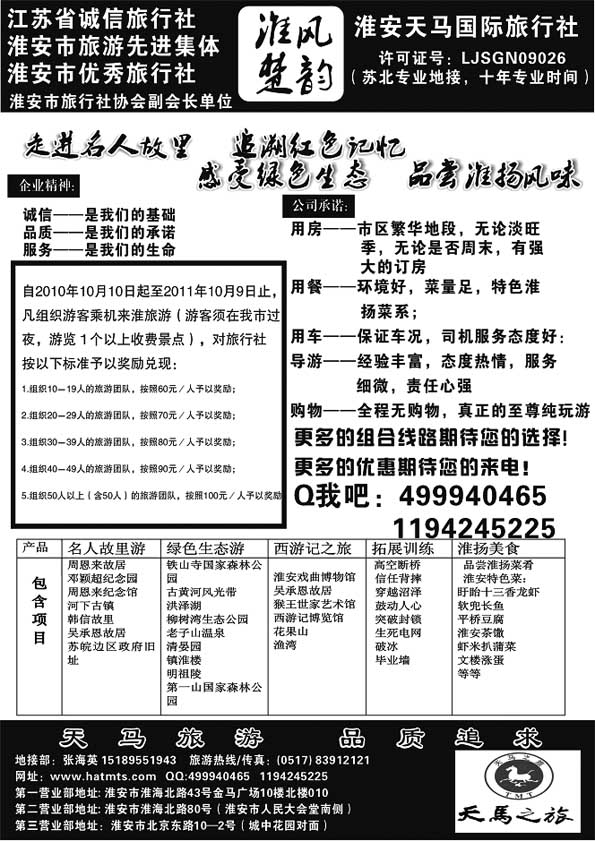 江苏省诚信旅行社
淮安市旅游先进集体
淮安市优秀旅行社
淮安市旅行社协会副会长单位
淮风
楚韵
淮安天马国际旅行社
许可证号：LJSGN09026
（苏北专业地接，十年专业时间）
走进名人故里 追溯红色记忆
感受绿色生态 品尝淮扬风味
企业精神：
诚信——是我们的基础
品质——是我们的承诺
服务——是我们的生命
自2010年10月10日起至2011年10月9日止，
凡组织游客乘机来淮旅游（游客须在我市过
夜，游览1个以上收费景点），对旅行社
按以下标准予以奖励兑现：
1.组织10—19人的旅游团队，按照60元／人予以奖励；
2.组织20—29人的旅游团队，按照70元／人予以奖励；
3.组织30—39人的旅游团队，按照80元／人予以奖励；
4.组织40—49人的旅游团队，按照90元／人予以奖励；
5.组织50人以上（含50人）的旅游团队，按照100元／人予以奖励
公司承诺：
用房——市区繁华地段，无论淡旺
季，无论是否周末，有强
大的订房
用餐——环境好，菜量足，特色淮
扬菜系；
用车——保证车况，司机服务态度好：
导游——经验丰富，态度热情，服务
细微，责任心强
购物——全程无购物，真正的至尊纯玩游
更多的组合线路期待您的选择！
更多的优惠期待您的来电！
Q我吧：499940465
1194245225
产品 名人故里游 绿色生态游 西游记之旅 拓展训练 淮扬美食
包含项目
周恩来故居
邓颖超纪念园
周恩来纪念馆
河下古镇
韩信故里
吴承恩故居
苏皖边区政府旧
址
铁山寺国家森林公
园
古黄河风光带
洪泽湖
柳树湾生态公园
老子山温泉
清晏园
镇淮楼
明祖陵
第一山国家森林公
园
淮安戏曲博物馆
吴承恩故居
猴王世家艺术馆
西游记博览馆
花果山
渔湾
高空断桥
信任背摔
穿越沼泽
鼓动人心
突破封锁
生死电网
破冰
毕业墙
品尝淮扬菜肴
淮安特色菜：
盱眙十三香龙虾
软兜长鱼
平桥豆腐
淮安茶馓
虾米扒蒲菜
文楼涨蛋
等等
天马旅游 品质追求
地接部：张海英 15189551943 旅游热线/传真：(0517) 83912121
网址：www.hatmts.com QQ:499940465 1194245225
第一营业部地址：淮安市淮海北路43号金马广场10楼北楼010
第二营业部地址：淮安市淮海北路80号（淮安市人民大会堂南侧）
第三营业部地址：淮安市北京东路10—2号（城中花园对面）
天马之旅
TMT
天馬之旅